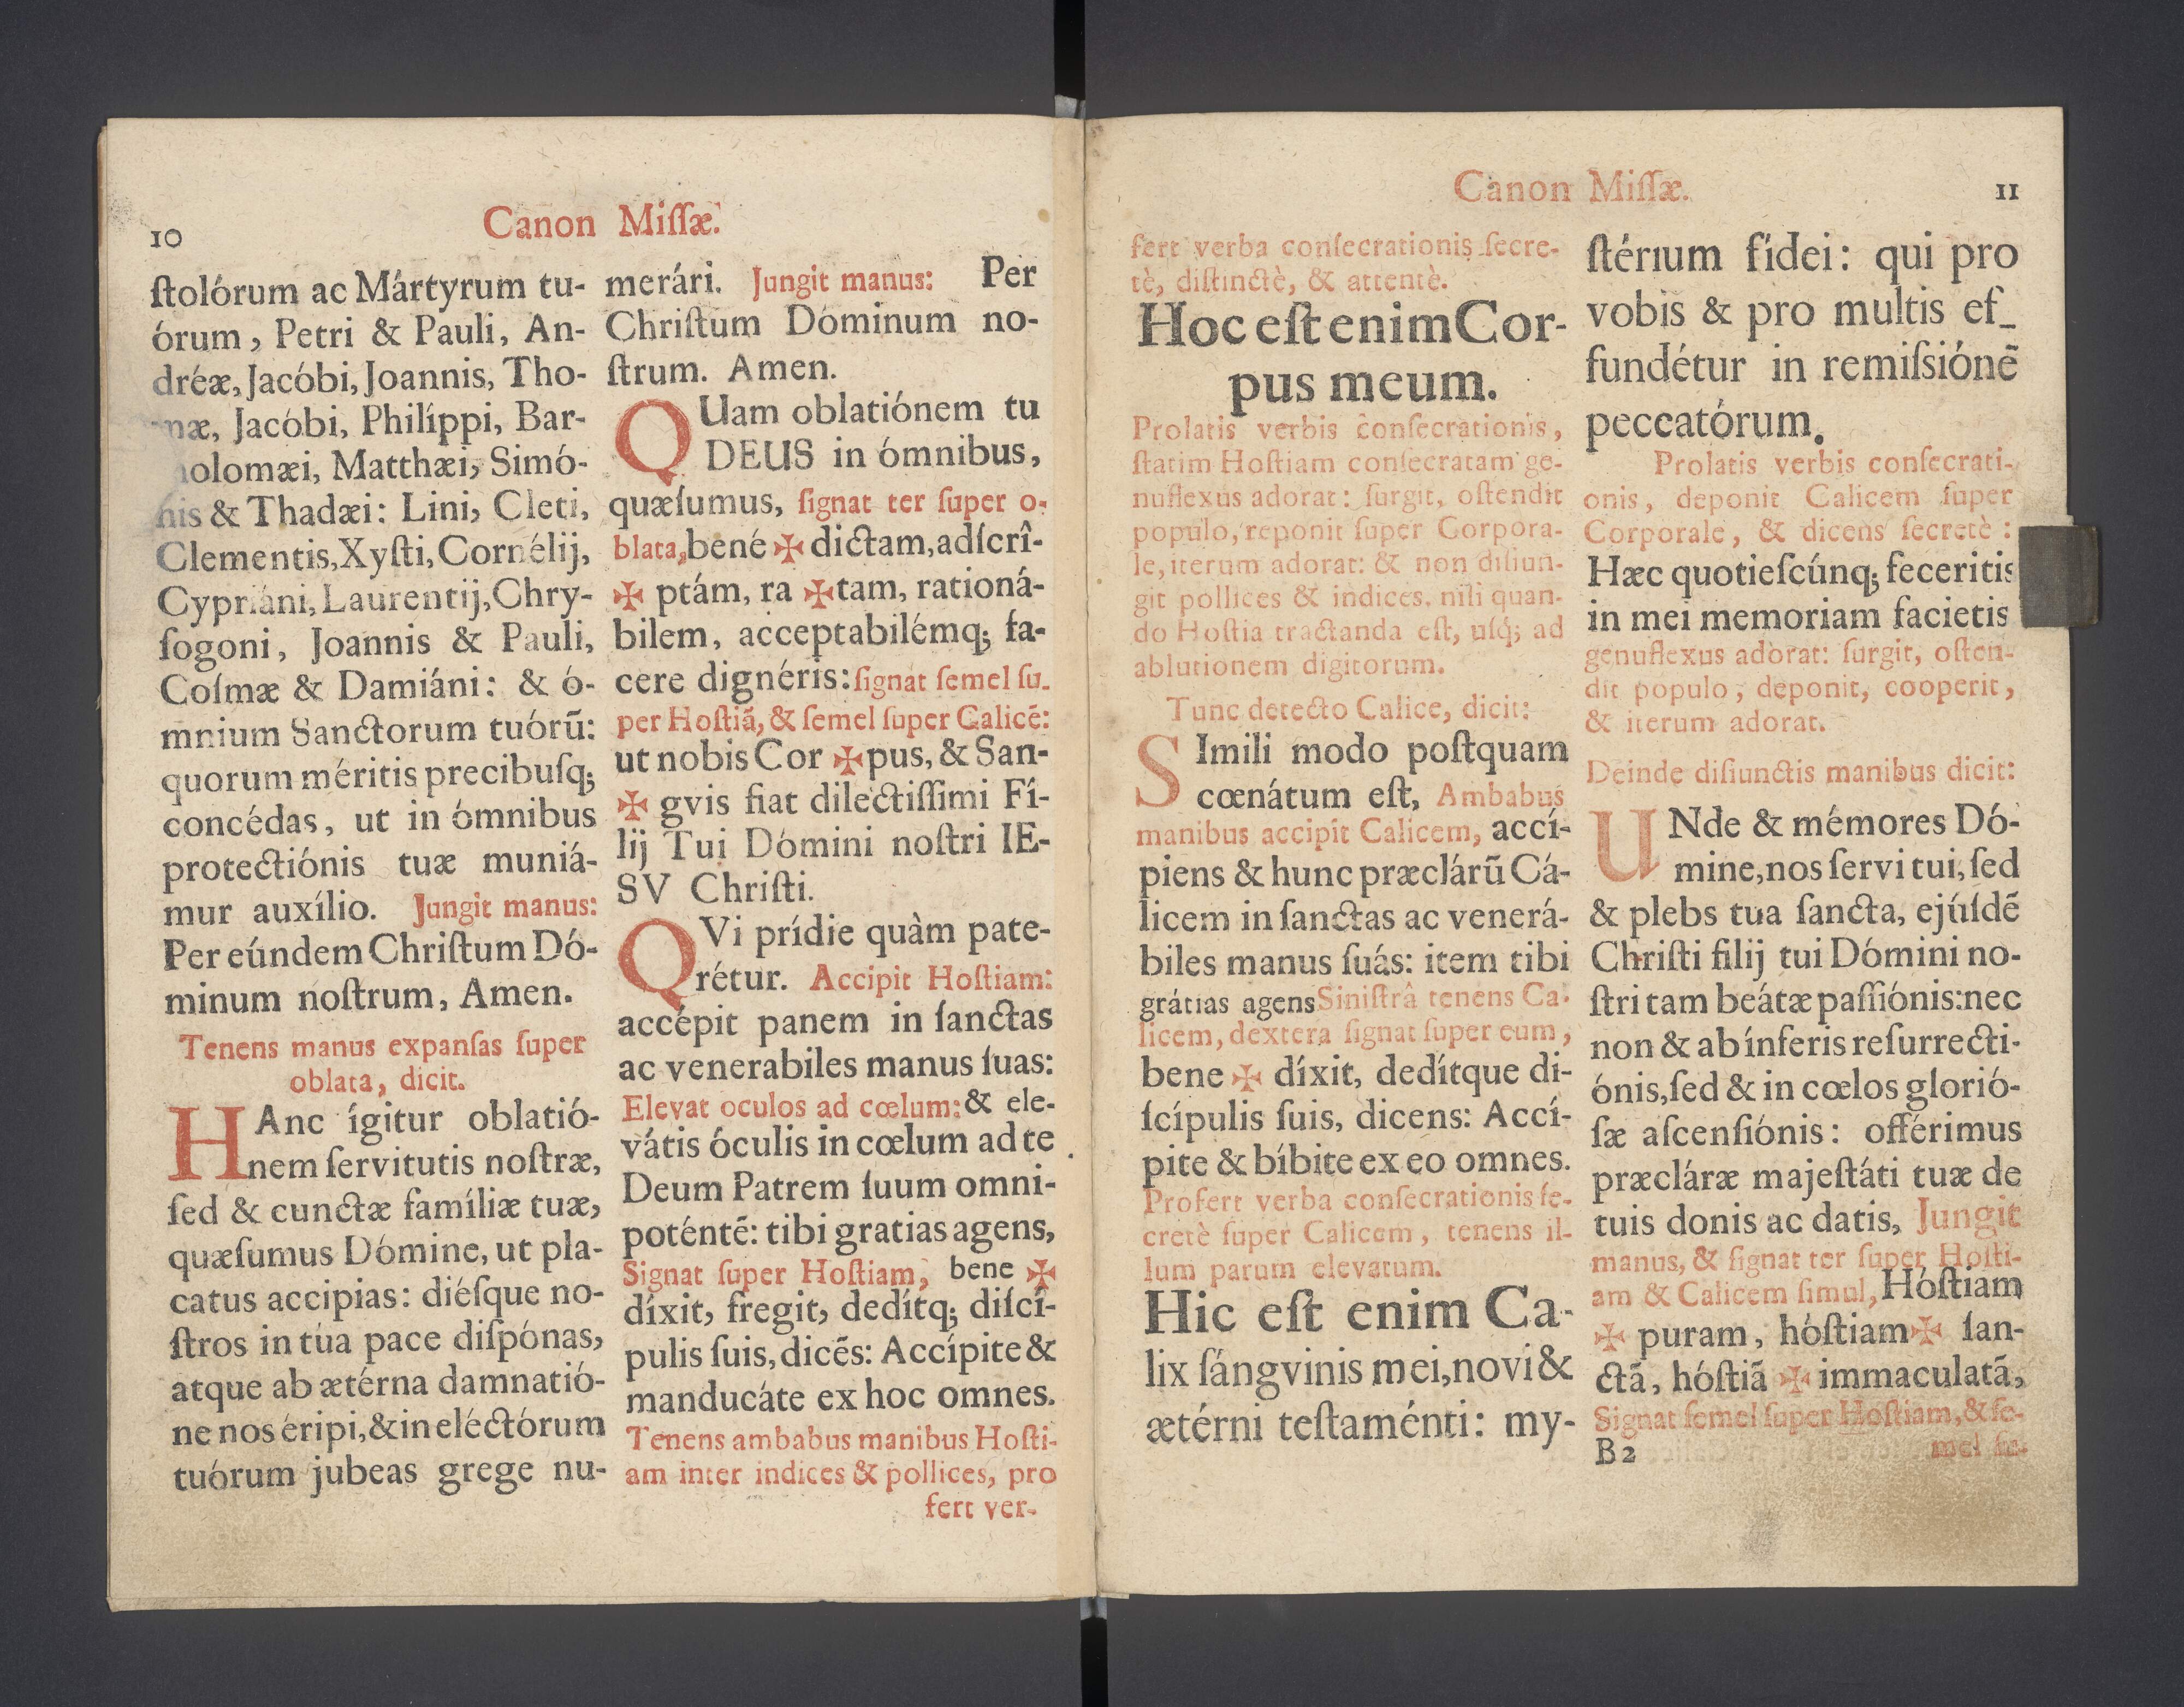 10
Canon Miſſæ.
ſtolórum ac Mártyrum tu-
órum, Petri & Pauli, An-
dréæ, Jacóbi, Joannis, Tho-
mæ, Jacóbi, Philíppi, Bar-
olomæi, Matthæi, Simó-
nis & Thadæi: Lini, Cleti,
Clementis, Xyſti, Cornélij,
Cypriáni, Laurentij, Chry-
ſogoni, Joannis & Pauli,
Coſmæ & Damiáni: & ó-
mnium Sanctorum tuórũ:
quorum méritis precibuſq;
concédas, ut in ómnibus
protectiónis tuæ muniá-
mur auxílio. Jungit manus:
Per eúndem Chriſtum Dó-
minum noſtrum, Amen.
Tenens manus expanſas ſuper
oblata, dicit.
HAnc ígitur oblatió-
nem ſervitutis noſtræ,
ſed & cunctæ famíliæ tuæ,
quæſumus Dómine, ut pla-
catus accipias: diéſque no-
ſtros in tua pace diſpónas,
atque ab ætérna damnatió-
ne nos éripi, & in eléctórum
tuórum jubeas grege nu-
merári. Jungit manus: Per
Chriſtum Dóminum no-
ſtrum. Amen.
QUam oblatiónem tu
DEUS in ómnibus,
quæſumus, ſignat ter ſuper o-
blata, bené ✠ dictam, adſcrî-
✠ ptám, ra ✠ tam, rationá-
bilem, acceptabilémq; fa-
cere dignéris: ſignat ſemel ſu-
per Hoſtiã, & ſemel ſuper Calicē:
ut nobis Cor ✠ pus, & San-
✠ gvis fiat dilectiſſimi Fí-
lij Tui Dómini noſtri IE-
SV Chriſti.
QVi prídie quàm pate-
rétur. Accipit Hoſtiam:
accépit panem in ſanctas
ac venerabiles manus ſuas:
Elevat oculos ad cœlum: & ele-
vátis óculis in cœlum ad te
Deum Patrem ſuum omni-
poténtē: tibi gratias agens,
Signat ſuper Hoſtiam, bene ✠
díxit, fregit, dedítq; diſcí-
pulis ſuis, dicēs: Accípite &
manducáte ex hoc omnes.
Tenens ambabus manibus Hoſti-
am inter indices & pollices, pro
fert ver-
Canon Miſſæ.
11
fert verba conſecrationis ſecre-
tè, diſtinctè, & attentè.
Hoc eſt enim Cor-
pus meum.
Prolatis verbis conſecrationis,
ſtatim Hoſtiam conſecratam ge-
nuflexus adorat: ſurgit, oſtendit
populo, reponit ſuper Corpora-
le, iterum adorat: & non diſiun-
git pollices & indices, niſi quan-
do Hoſtia tractanda eſt, uſq; ad
ablutionem digitorum.
Tunc detecto Calice, dicit:
SImili modo poſtquam
cœnátum eſt, Ambabus
manibus accipit Calicem, accí-
piens & hunc præclárũ Cá-
licem in ſanctas ac venerá-
biles manus ſuás: item tibi
grátias agens Siniſtrâ tenens Ca-
licem, dextera ſignat ſuper eum,
bene ✠ díxit, dedítque di-
ſcípulis ſuis, dicens: Accí-
pite & bíbite ex eo omnes.
Profert verba conſecrationis ſe-
cretè ſuper Calicem, tenens il-
lum parum elevatum.
Hic eſt enim Ca-
lix ſángvinis mei, novi &
ætérni teſtaménti: my-
ſtérium fídei: qui pro
vobis & pro multis ef-
fundétur in remiſsiónē
peccatórum.
Prolatis verbis conſecrati-
onis, deponit Calicem ſuper
Corporale, & dicens ſecretè:
Hæc quotieſcúnq; feceritis
in mei memoriam facietis
genuflexus adorat: ſurgit, oſten-
dit populo, deponit, cooperit,
& iterum adorat.
Deinde diſiunctis manibus dicit:
UNde & mémores Dó-
mine, nos ſervi tui, ſed
& plebs tua ſancta, ejúſdē
Chriſti filij tui Dómini no-
ſtri tam beátæ paſſiónis: nec
non & ab ínferis reſurrecti-
ónis, ſed & in cœlos glorió-
ſæ aſcenſiónis: offérimus
præcláræ majeſtáti tuæ de
tuis donis ac datis, Jungit
manus, & ſignat ter ſuper Hoſti-
am & Calicem ſimul, Hóſtiam
✠ puram, hóſtiam ✠ ſan-
ctã, hóſtiã ✠ immaculatã,
Signat ſemel ſuper Hoſtiam, & ſe-
B2
mel ſu-